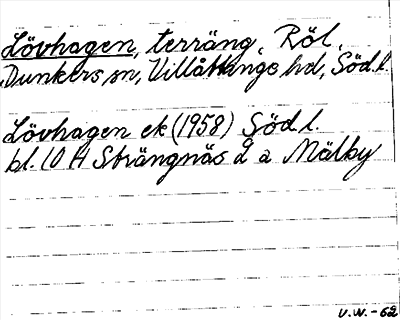 Lövhagen, terräng, Röl,
Dunkers sn, Villåttinge hd, Södl.
Lövhagen ek (1958) Södl.
bl. 10 H Strängnäs 2 a Mälby
V.W.-62